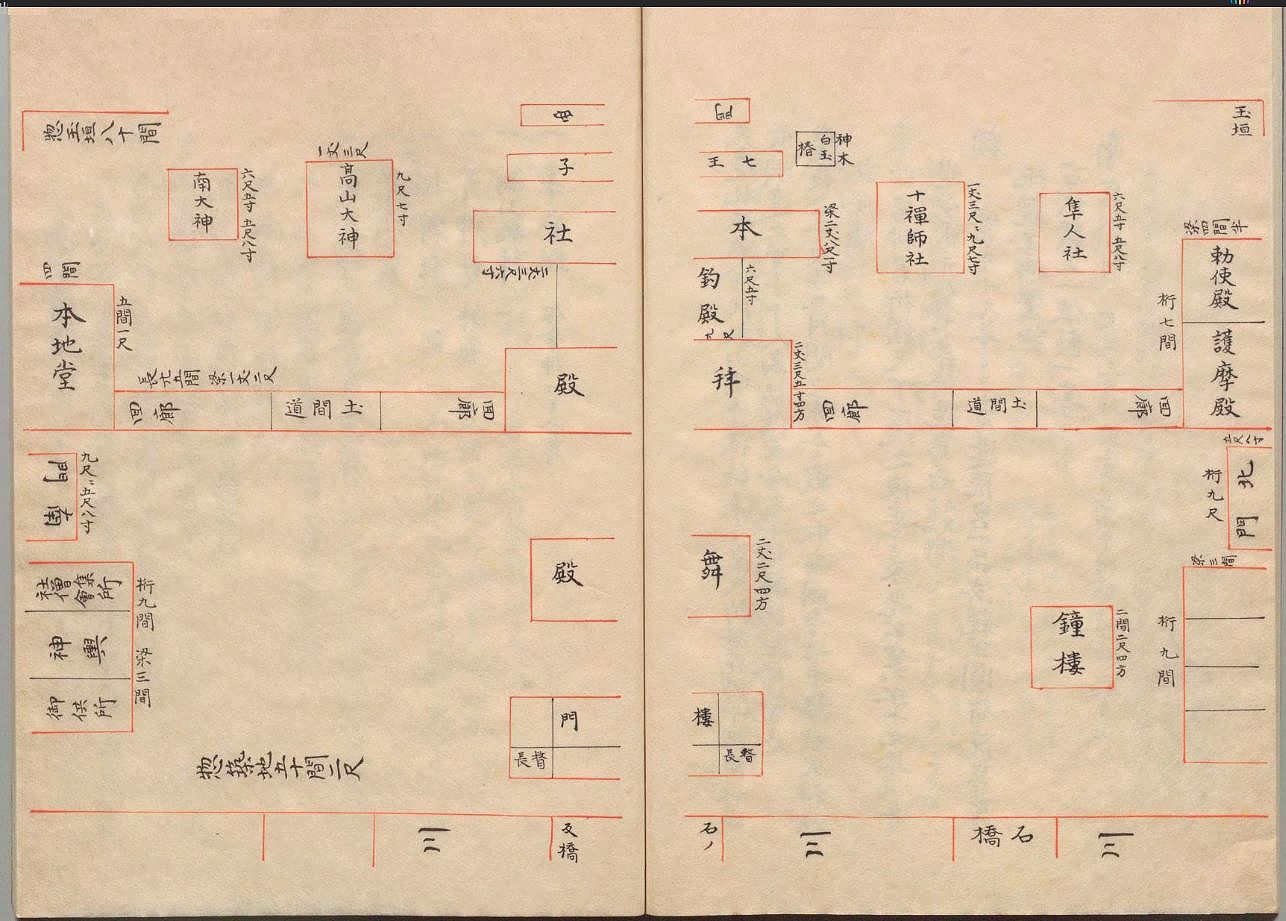 玉垣
神木
白玉椿
七王
門
隼人社
六尺五寸 五尺八寸
十禪師社
一丈三尺 九尺七寸
本
梁二丈八尺一寸
釣殿
六尺五寸
九尺
拜
二丈三尺五寸四方
梁四間半
勅使殿
護摩殿
桁七間
回廊
土間道
回廊
五尺八寸
北門
桁九尺
梁三間
桁九間
鐘樓
二間二尺四方
舞
二丈二尺四方
樓
長督
川
石橋
川
石ノ
子
社
殿
高山大神
一丈三尺
九尺七寸
南大神
六尺五寸 五尺八寸
惣玉垣八十間
四間
本地堂
五間一尺
長九五間 梁一丈二尺
回廊
土間道
回廊
九尺 五尺八寸
社僧集會所
神輿
御供所
桁九間 梁三間
殿
門
長督
惣築地五十間二尺
反橋
川